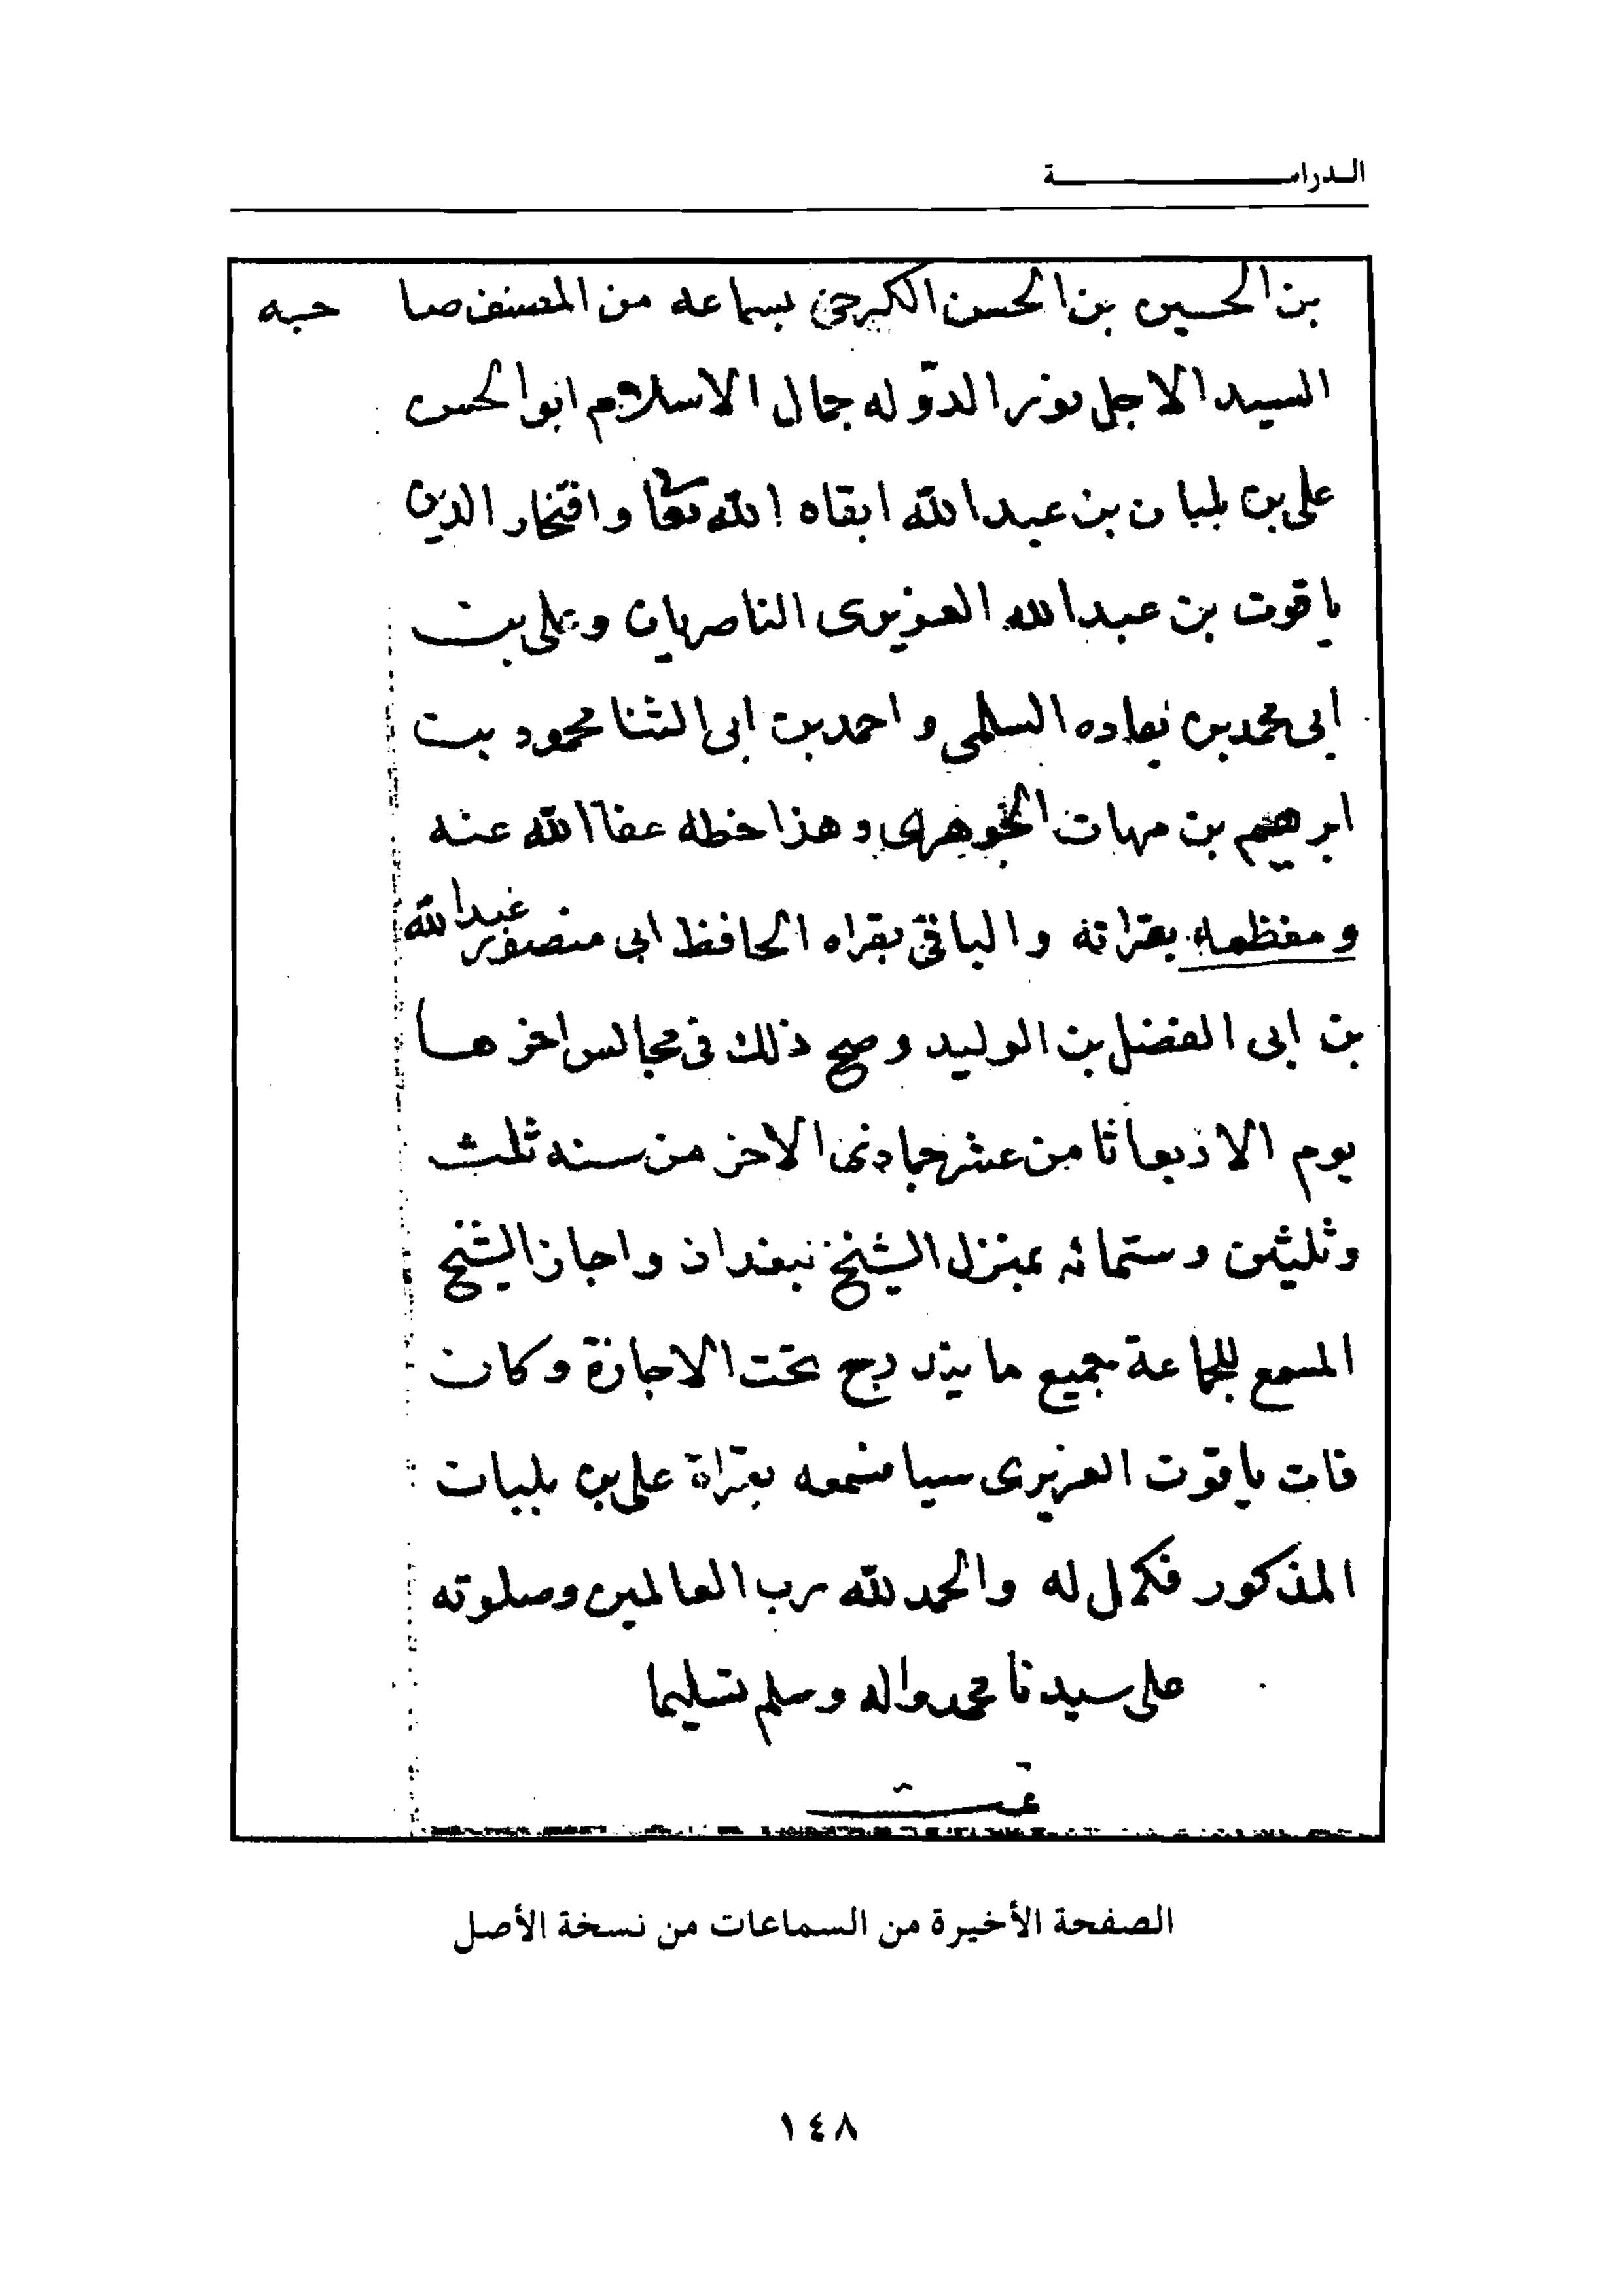 الدراسة
بن الحسين بن الحسن الكرجى بسماعه من المصنف صاحبه
السيد الاجل نور الدوله جمال الاسلام ابو الحسن
على بن بلبان بن عبد الله ابقاه الله تعا وافتخار الدين
ياقوت بن عبد الله العزيزى الناصريان وعلى بن
ابى محمد بن السلمى واحمد بن ابى الثنا محمود بن
ابرهيم بن الجوهرى وهذا خطه عفا الله عنه
ومعظمه بقراته والباقى بقراه الحافظ ابى منصور عبد الله
بن ابى الفضل بن الوليد وصح ذلك فى مجالس اخرها
يوم الاربعا ثامن عشر جمادى الاخر من سنه ثلث
وثلثين وستمائه بمنزل الشيخ ببغداد واجاز الشيخ
المسمع للجماعة جميع ما يندرج تحت الاجازة وكان
فات ياقوت العزيزى سيا فسمعه بقراة على بن بلبان
المذكور فكمل له والحمد لله رب العالمين وصلوته
على سيدنا محمد واله وسلم تسليما
تمت
الصفحة الأخيرة من السماعات من نسخة الأصل
١٤٨